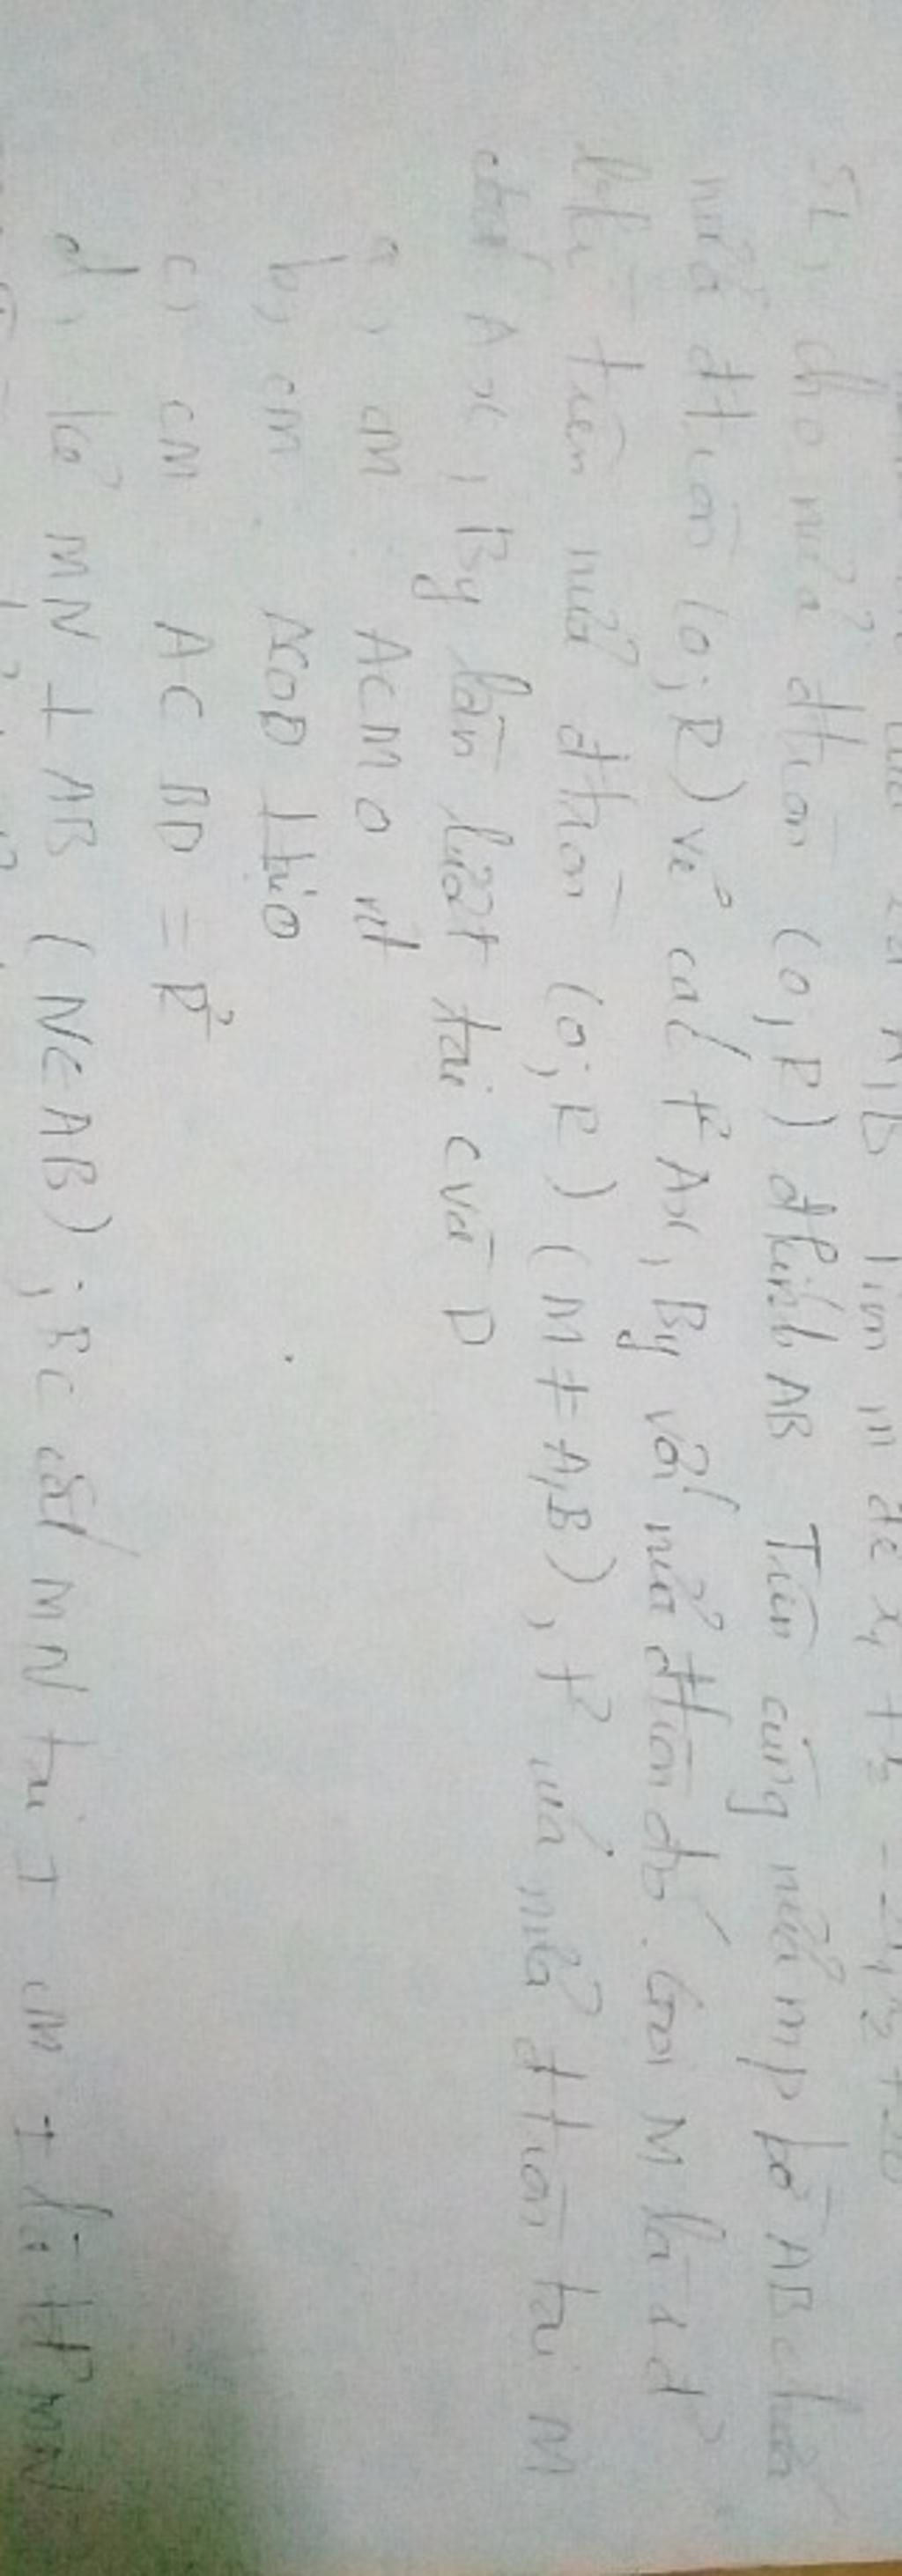 cho nửa đtròn (O, R) đkính AB Trên cùng nửa mp bờ AB chứa
nửa đtròn (O; R) vẽ các t² Ax, By với nửa đtròn đó. Gọi M là 1 đ²
trên nửa đtròn (O; R) (M ≠ A, B), t² với nửa đtròn tại M
cắt Ax, By lần lượt tại C và D
a, CM ACMO nt
b, CM
c, CM AC BD = R²
d, kẻ MN ⊥ AB (N∈AB); BC cắt MN tại I CM I là tđ² MN